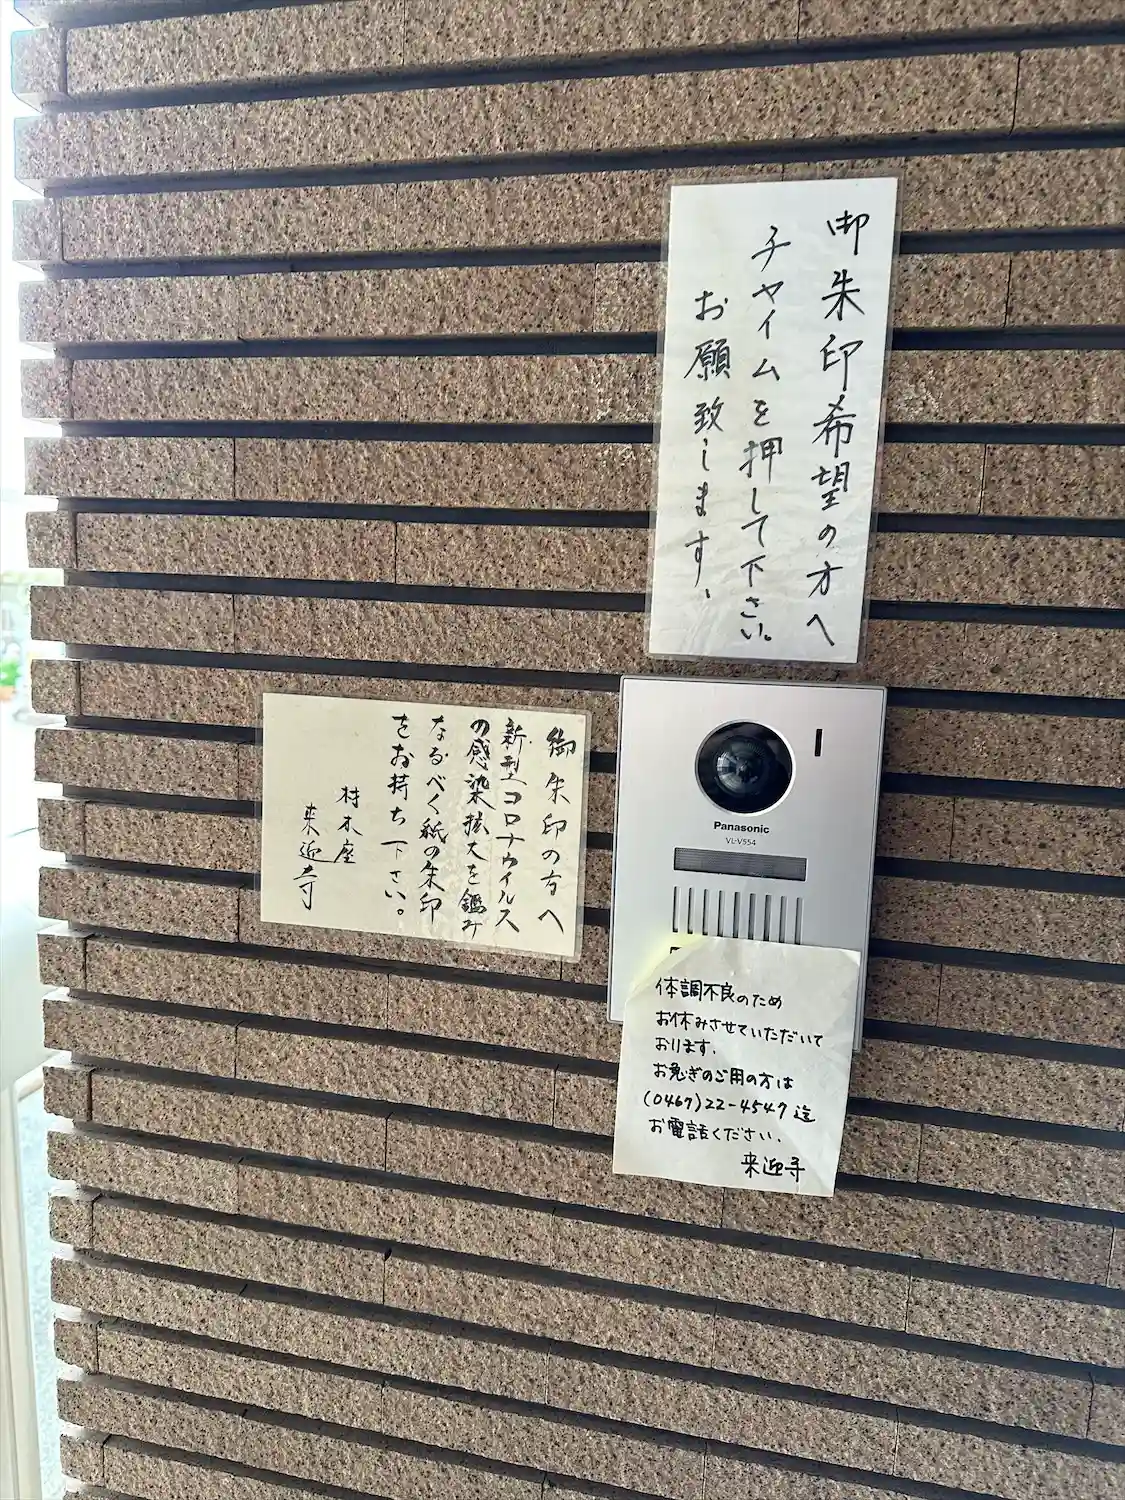 御朱印希望の方へ
チャイムを押して下さい。
お願致します、
御朱印の方へ
新型コロナウイルス
の感染拡大を鑑み
なるべく紙の朱印
をお持ち下さい。
材木座
来迎寺
Panasonic
VL-V554
体調不良のため
お休みさせていただいて
おります.
お急ぎのご用の方は
(0467)22-4547迄
お電話ください.
来迎寺